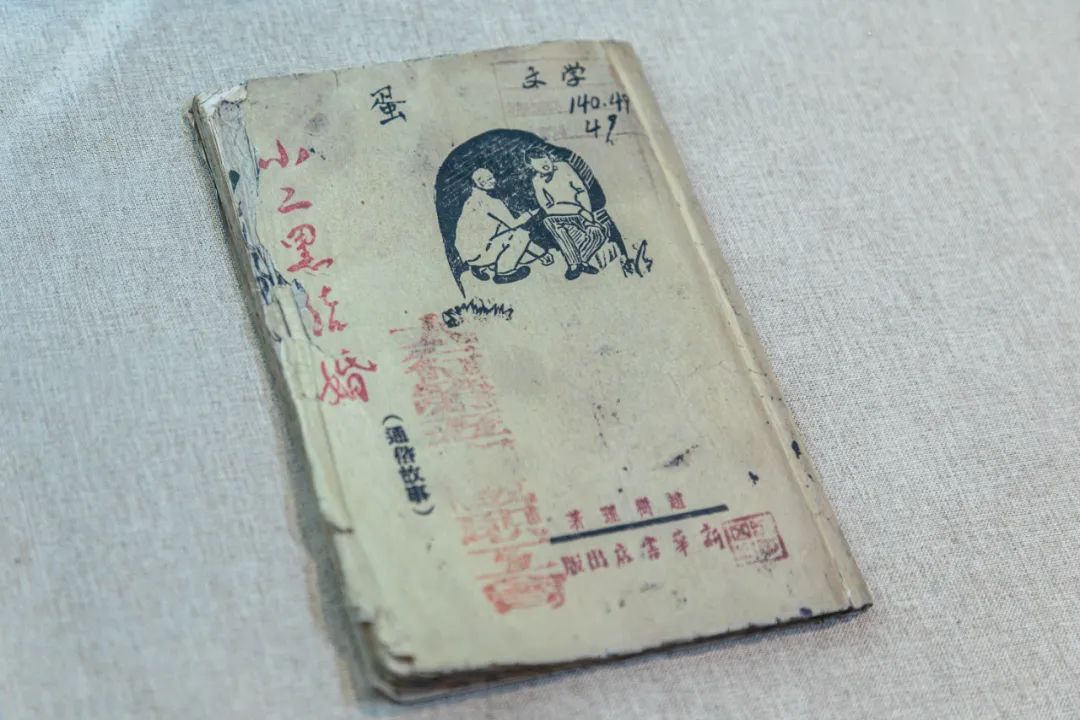 蛋
文学
140.49
49
小二黑结婚
（通俗故事）
趙樹理著
新華書店出版